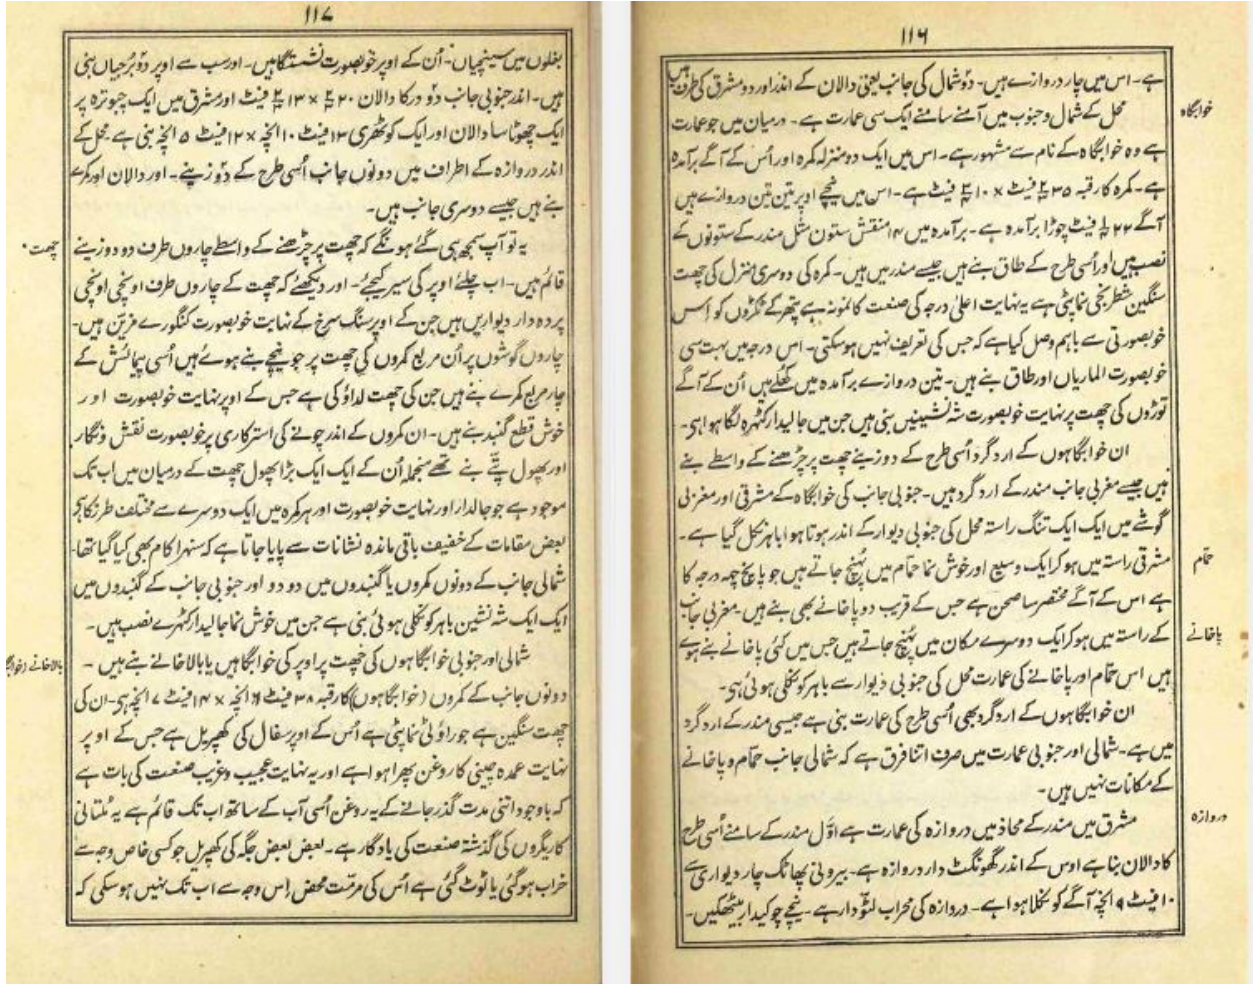 ١١٦
ہے۔ اس میں چار دروازے ہیں۔ دوشمال کی جانب یعنی دالان کے اندر اور دو مشرق کی طرف ہیں
خوابگاہ
محل کے شمال و جنوب میں آمنے سامنے ایک سی عمارت ہے۔ درمیان میں جو عمارت
ہے وہ خوابگاہ کے نام سے مشہور ہے۔ اس میں ایک دو منزلہ کمرہ اور اُس کے آگے برآمدہ
ہے۔ کمرہ کا رقبہ ۳۵ فیٹ × ۱۰ فیٹ ہے۔ اس میں نیچے اوپر تین تین دروازے ہیں
آگے ۲۲ فیٹ چوڑا برآمدہ ہے۔ برآمدہ میں ۱۴ منقش ستون مثل مندر کے ستونوں کے
نصب ہیں اور اُسی طرح کے طاق بنے ہیں جیسے مندر میں ہیں۔ کمرہ کی دوسری منزل کی چھت
سنگین شطرنجی نما پٹی ہے یہ نہایت اعلیٰ درجہ کی صنعت کا نمونہ ہے پتھر کے ٹکڑوں کو اِس
خوبصورتی سے باہم وصل کیا ہے کہ جس کی تعریف نہیں ہوسکتی۔ اس درجہ میں بہت سی
خوبصورت الماریاں اور طاق بنے ہیں۔ تین دروازے برآمدہ میں کُھلے ہیں اُن کے آگے
توڑوں کی چھت پر نہایت خوبصورت شہ نشینیں بنی ہیں جن میں جالیدار کٹہرہ لگا ہوا ہی۔
ان خوابگاہوں کے ارد گرد اُسی طرح کے دو زینے چھت پر چڑھنے کے واسطے بنے
ہیں جیسے مغربی جانب مندر کے ارد گرد ہیں۔ جنوبی جانب کی خوابگاہ کے مشرقی اور مغربی
گوشے میں ایک ایک تنگ راستہ محل کی جنوبی دیوار کے اندر ہوتا ہوا باہر نکل گیا ہے۔
حمّام
مشرقی راستہ میں ہو کر ایک وسیع اور خوش نما حمام میں پہنچ جاتے ہیں جو پانچ چھہ درجہ کا
ہے اس کے آگے مختصر سا صحن ہے جس کے قریب دو پاخانے بھی بنے ہیں۔ مغربی جانب
پاخانے
کے راستہ میں ہو کر ایک دوسرے مکان میں پہنچ جاتے ہیں جس میں کئی پاخانے بنے ہوئے
ہیں اس حمّام اور پاخانے کی عمارت محل کی جنوبی دیوار سے باہر کو نکلی ہوئی ہی۔
ان خوابگاہوں کے ارد گرد بھی اُسی طرح کی عمارت بنی ہے جیسی مندر کے ارد گرد
میں ہے۔ شمالی اور جنوبی عمارت میں صرف اتنا فرق ہے کہ شمالی جانب حمّام و پاخانے
کے مکانات نہیں ہیں۔
دروازہ
مشرق میں مندر کے محاذ میں دروازہ کی عمارت ہے اوّل مندر کے سامنے اُسی طرح
کا دالان بنا ہے اوس کے اندر گھونگٹ دار دروازہ ہے۔ بیرونی پھاٹک چار دیواری سے
۱۰ فیٹ ۹ انچہ آگے کو نکلا ہوا ہے۔ دروازہ کی محراب لٹّو دار ہے۔ نیچے چوکیدار بیٹھکیں۔
١١٧
بغلوں میں سینچیاں۔ اُن کے اوپر خوبصورت نشستگاہیں۔ اور سب سے اوپر دو برجیاں بنی
ہیں۔ اندر جنوبی جانب دو درکا دالان ۲۰ × ۱۳ فیٹ اور مشرق میں ایک چبوترہ پر
ایک چھوٹا سا دالان اور ایک کوٹھری ۱۳ فیٹ ۱۰ انچہ × ۱۲ فیٹ ۵ انچہ بنی ہے۔ محل کے
اندر دروازہ کے اطراف میں دونوں جانب اُسی طرح کے دو زینے۔ اور دالان اور کمرے
بنے ہیں جیسے دوسری جانب ہیں۔
چھت
یہ تو آپ سمجھ ہی گئے ہونگے کہ چھت پر چڑھنے کے واسطے چاروں طرف دو دو زینے
قائم ہیں۔ اب چلئے اوپر کی سیر کیجئے۔ اور دیکھئے کہ چھت کے چاروں طرف اونچی اونچی
پردہ دار دیواریں ہیں جن کے اوپر سنگ سرخ کے نہایت خوبصورت کنگورے مزین ہیں۔
چاروں گوشوں پر اُن مربع کمروں کی چھت پر جو نیچے بنے ہوئے ہیں اُسی پیمائش کے
چار مربع کمرے بنے ہیں جن کی چھت لداؤ کی ہے جس کے اوپر نہایت خوبصورت اور
خوش قطع گنبد بنے ہیں۔ ان کمروں کے اندر چونے کی استرکاری پر خوبصورت نقش و نگار
اور پھول پتّے بنے تھے منجملہ اُن کے ایک ایک بڑا پھول چھت کے درمیان میں اب تک
موجود ہے جو جالدار اور نہایت خوبصورت اور ہر کمرہ میں ایک دوسرے سے مختلف طرز کا ہے
بعض مقامات کے خفیف باقی ماندہ نشانات سے پایا جاتا ہے کہ سنہرا کام بھی کیا گیا تھا۔
شمالی جانب کے دونوں کمروں یا گنبدوں میں دو دو اور جنوبی جانب کے گنبدوں میں
ایک ایک شہ نشین باہر کو نکلی ہوئی بنی ہے جن میں خوش نما جالیدار کٹہرے نصب ہیں۔
بالاخانے
شمالی اور جنوبی خوابگاہوں کی چھت پر اوپر کی خوابگاہیں یا بالاخانے بنے ہیں ۔
دونوں جانب کے کمروں (خوابگاہوں) کا رقبہ ۳۸ فیٹ انچہ × ۱۴ فیٹ ۷ انچہ ہی۔ ان کی
چھت سنگین ہے جو راؤٹی نما پٹی ہے اُس کے اوپر سفال کی کھپریل ہے جس کے اوپر
نہایت عمدہ چینی کا روغن پھرا ہوا ہے اور یہ نہایت عجیب و غریب صنعت کی بات ہے
کہ باوجود اتنی مدت گذر جانے کے یہ روغن اُسی آب کے ساتھ اب تک قائم ہے یہ مُلتانی
کاریگروں کی گذشتہ صنعت کی یادگار ہے۔ بعض بعض جگہ کی کھپریل جو کسی خاص وجہ سے
خراب ہوگئی یا ٹوٹ گئی ہے اُس کی مرمّت محض اِس وجہ سے اب تک نہیں ہوسکی کہ